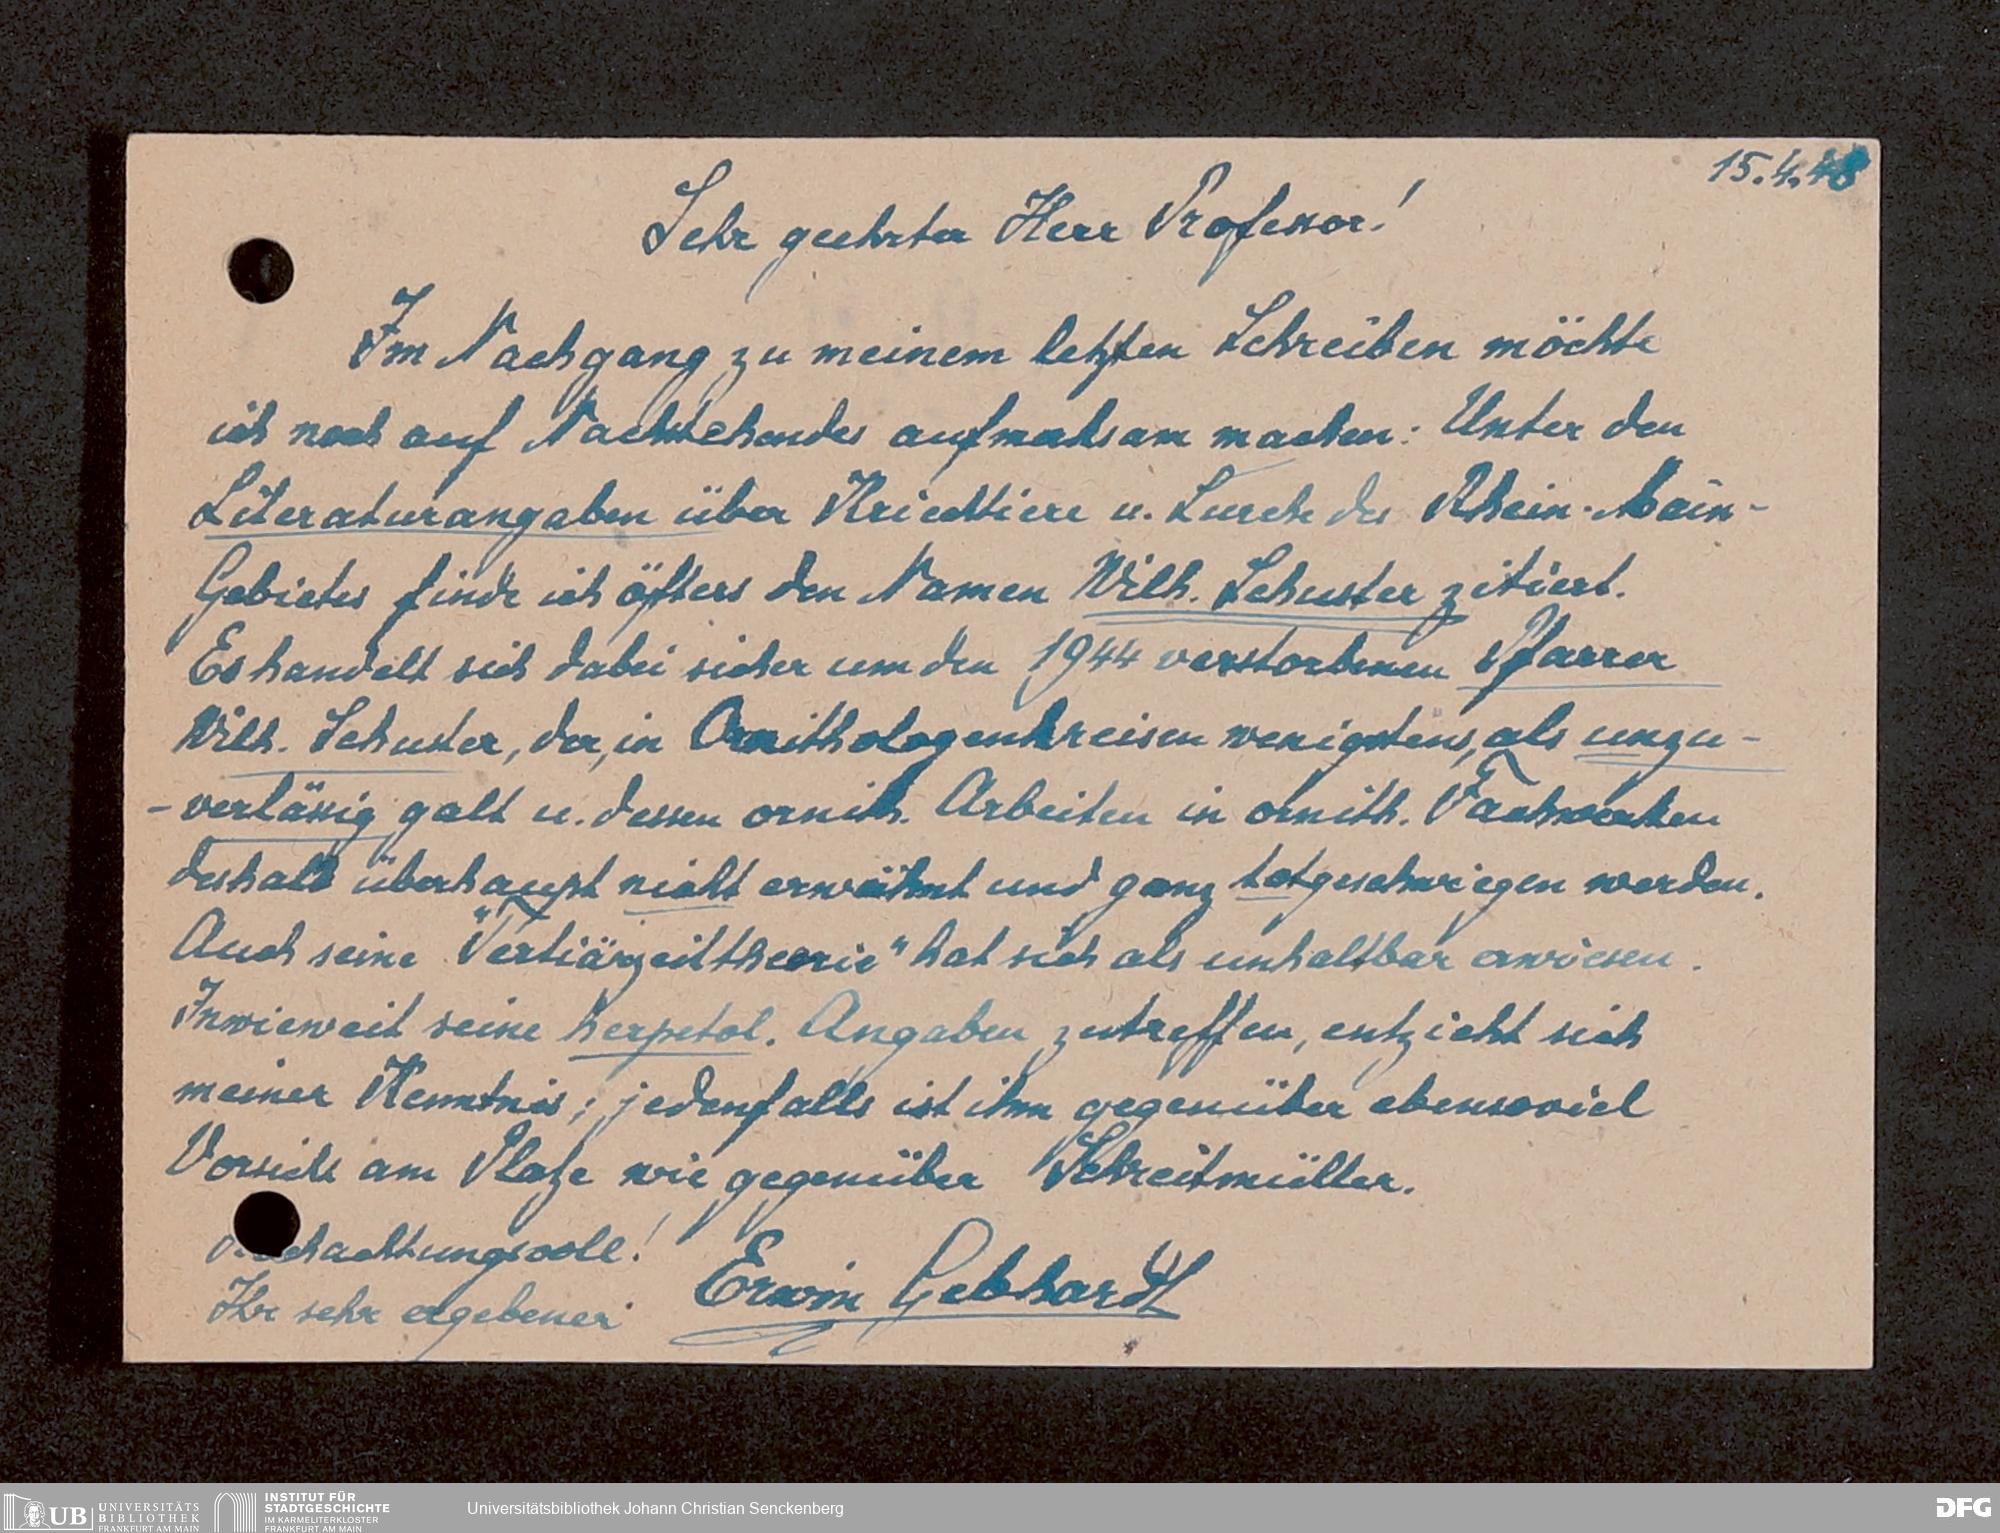 15.4.48
Sehr geehrter Herr Professor!
Im Nachgang zu meinem letzten Schreiben möchte
ich noch auf Nachstehendes aufmerksam machen: Unter den
Literaturangaben über Kriechtiere u. Lurche des Rhein-Main-
Gebietes finde ich öfters den Namen Wilh. Schuster zitiert.
Es handelt sich dabei sicher um den 1944 verstorbenen Pfarrer
Wilh. Schuster, der, in Ornithologenkreisen wenigstens, als unzu-
-verlässig galt u. dessen ornith. Arbeiten in ornith. Fachwerken
deshalb überhaupt nicht erwähnt und ganz totgeschwiegen werden.
Auch seine "Tertiärzeittheorie" hat sich als unhaltbar erwiesen.
Inwieweit seine herpetol. Angaben zutreffen, entzieht sich
meiner Kenntnis; jedenfalls ist ihm gegenüber ebensoviel
Vorsicht am Platze wie gegenüber Schreitmüller.
Hochachtungsvoll!
Ihr sehr ergebener
Erwin Gebhardt
UB UNIVERSITÄTS
BIBLIOTHEK
FRANKFURT AM MAIN
INSTITUT FÜR
STADTGESCHICHTE
IM KARMELITERKLOSTER
FRANKFURT AM MAIN
Universitätsbibliothek Johann Christian Senckenberg
DFG